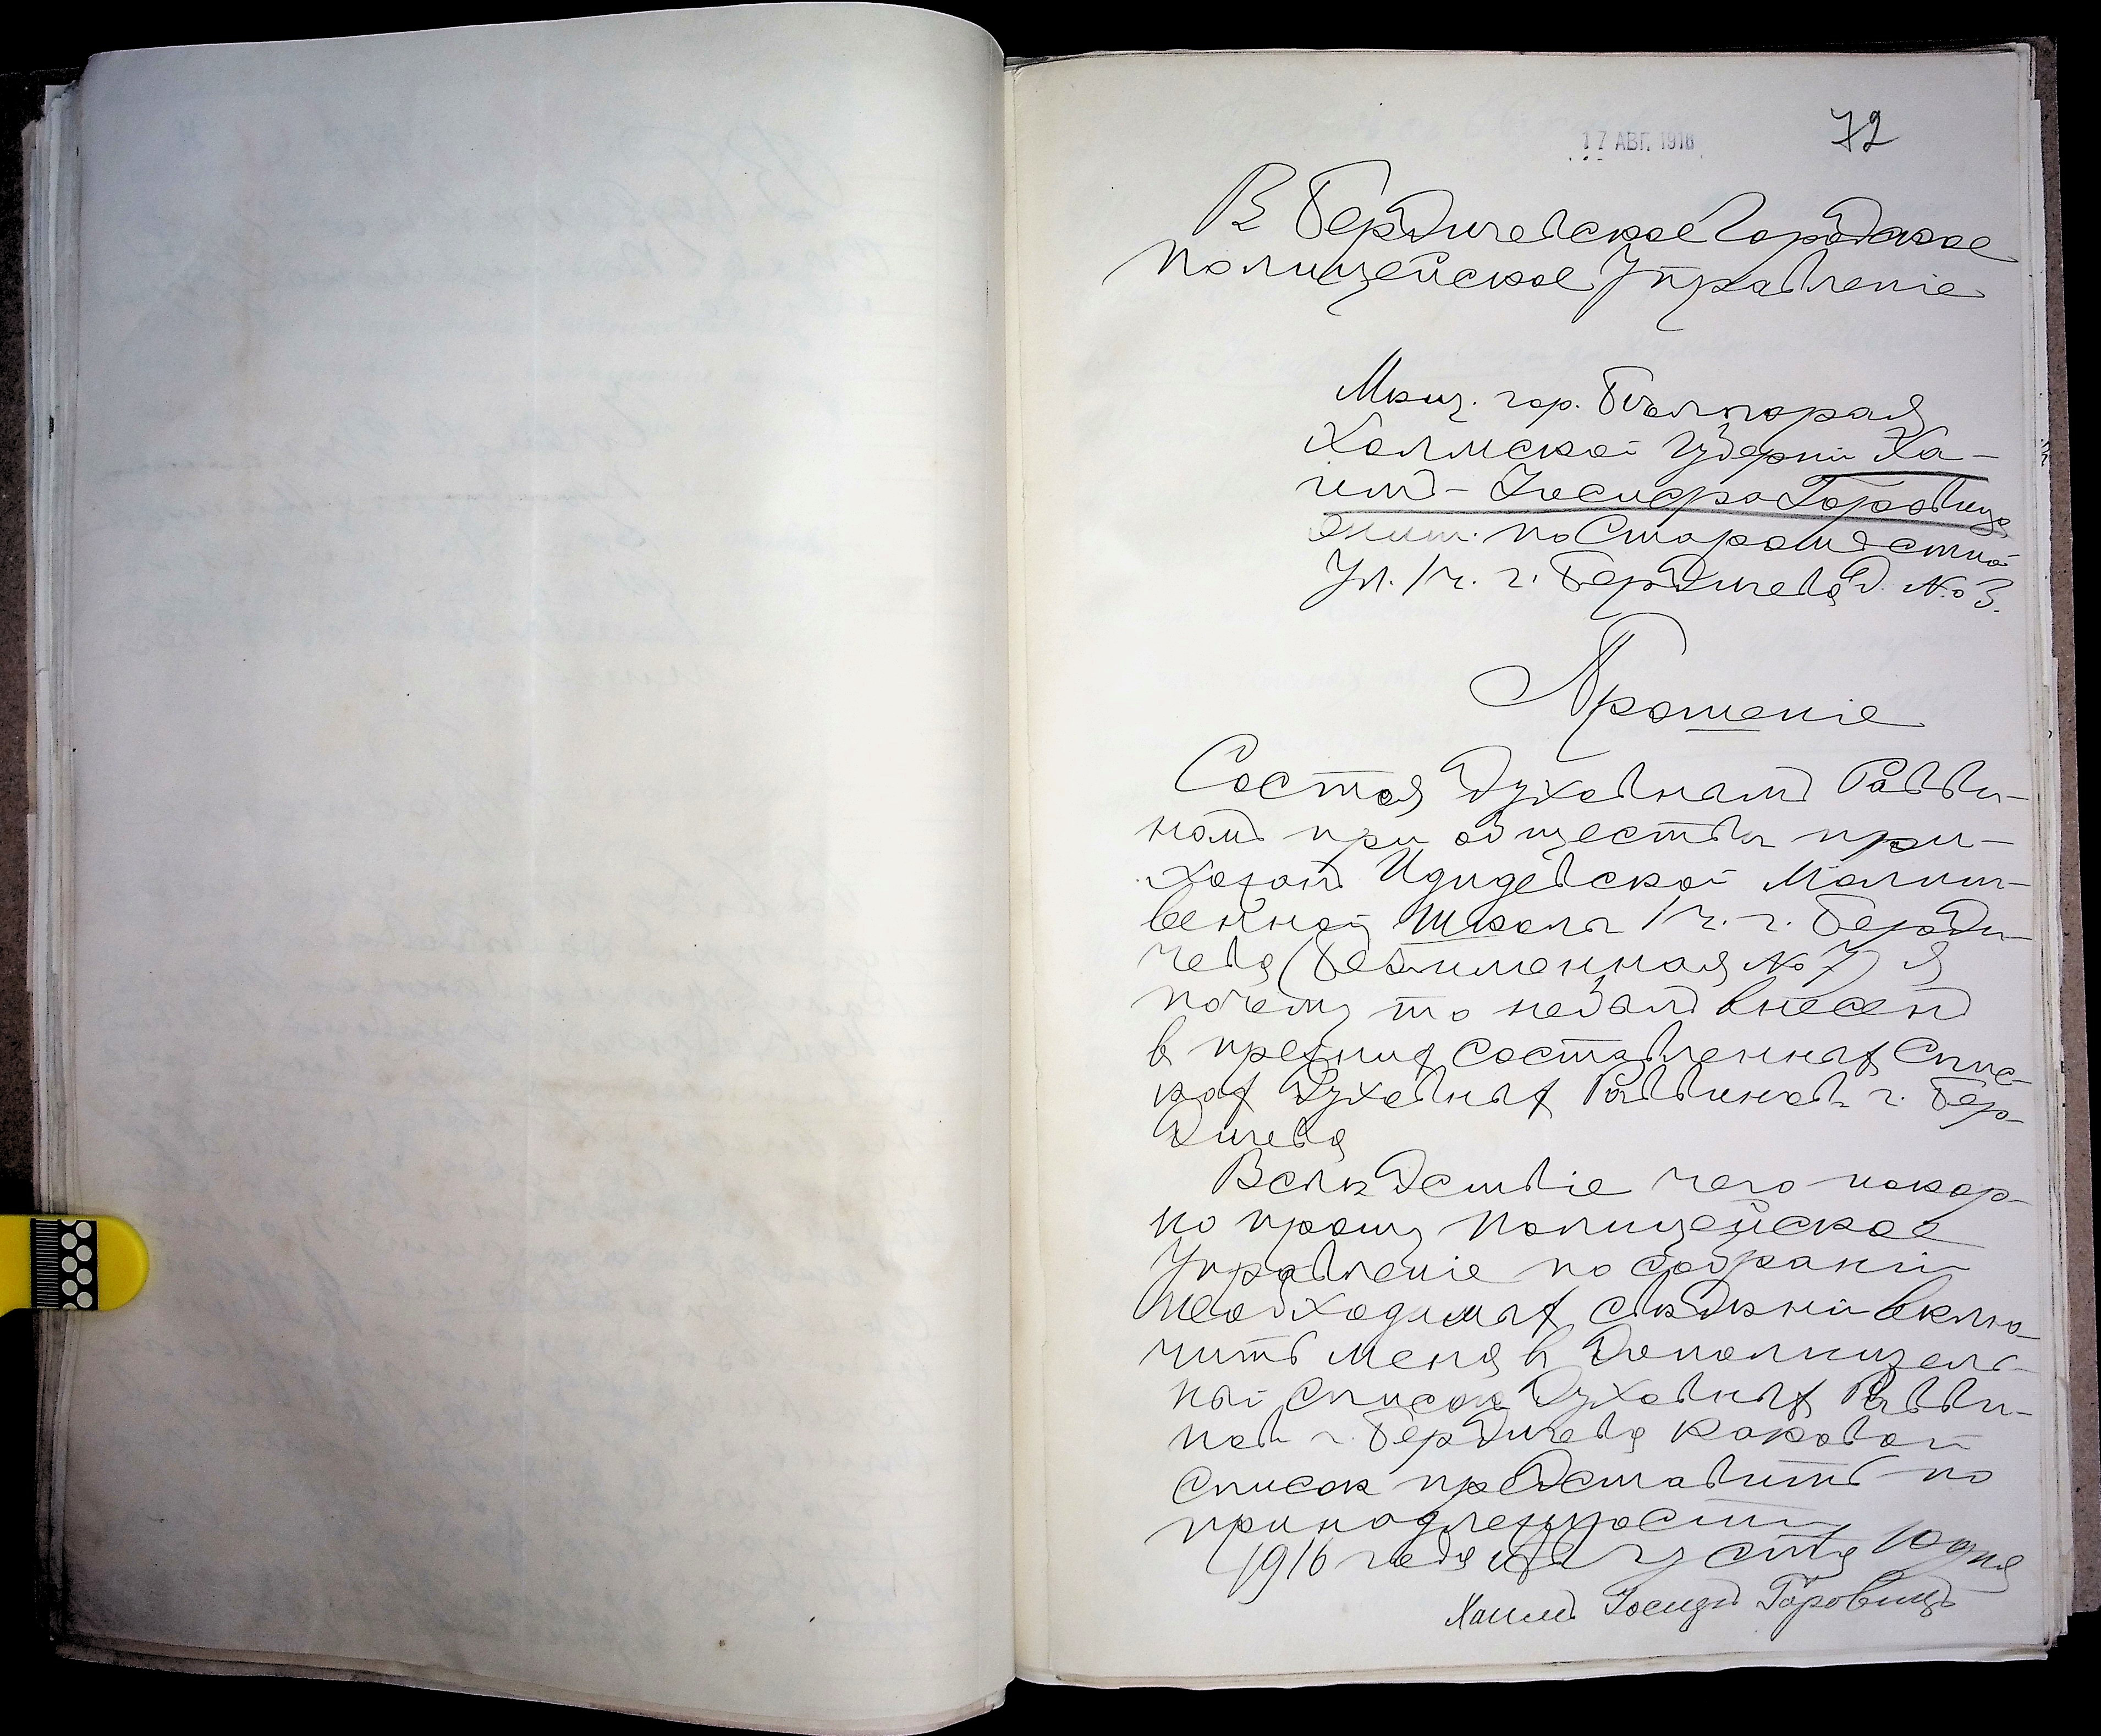 17 АВГ. 1916
72
В Бердичевское Городское
Полицейское Управленіе
Мѣщ. гор. Бѣлгорая
Холмской губерніи Ха-
имъ-Іосифа Горовица
жит. по Старомѣстной
Ул. 1 ч. г. Бердичева д. № 3.
Прошеніе
Состоя Духовнымъ Равви-
номъ при обществѣ при-
хожанъ Иудейской Молит-
венной школы 1 ч. г. Берди-
чева (безъименная № 7) я
почему то небылъ внесенъ
в прежних составленных Спис-
ках Духовных Раввиновъ г. Бер-
дичева
Вслѣдствіе чего покор-
но прошу Полицейское
Управленіе по собраніи
необходимых свѣдѣній вклю-
чить меня в Дополнитель-
ный Список Духовных Равви-
новъ г. Бердичева каковой
список представить по
принадлежности
1916 года Августа 10 дня
Хаимъ Іосифъ Горовицъ